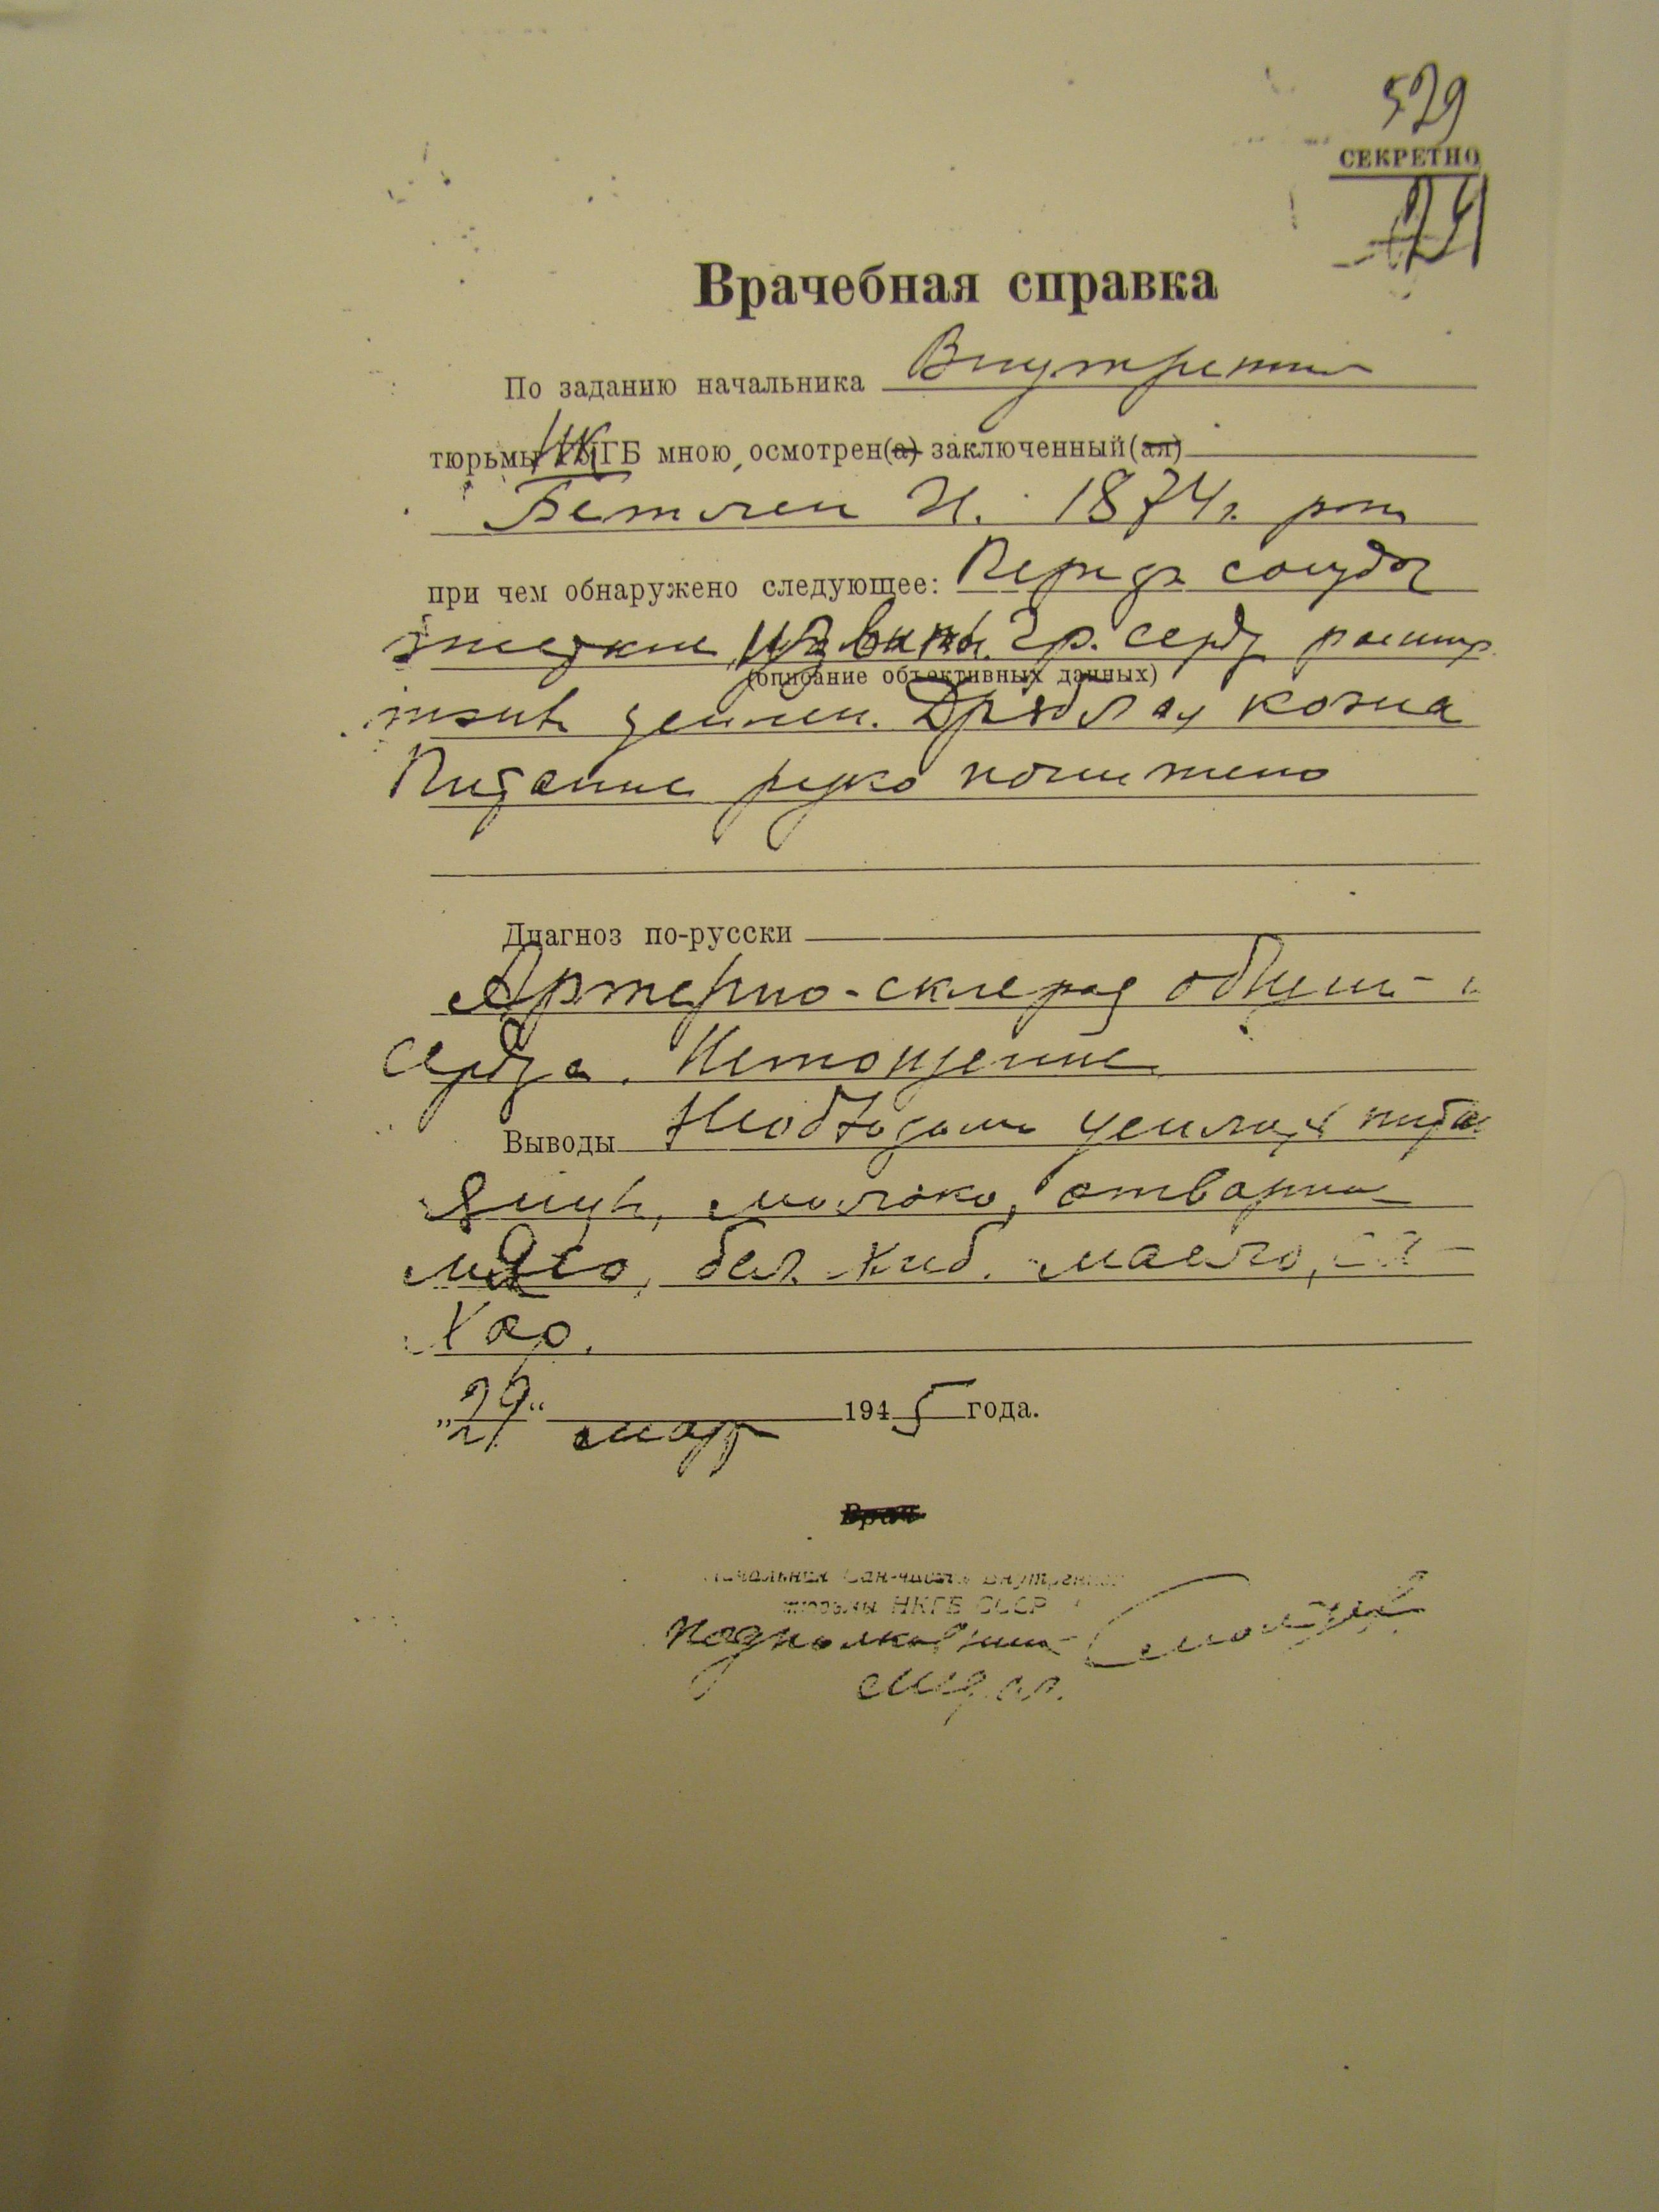 529
СЕКРЕТНО
Врачебная справка
По заданию начальника Внутренней
тюрьмы НКГБ мною осмотрен(а) заключенный(ая)
Бетлен И. 1874 г. рож
при чем обнаружено следующее: сосуды
жестки извиты. Гр. серд расшир
(описание объективных данных)
Дряблая кожа
Питание резко понижено
Диагноз по-русски
Артерио-склероз общий и
сердца. Истощение
Выводы Необходимо усилен пита
яйца, молоко, отварное
мясо, бел. хлеб. масло, са-
хар.
„29“ мар 1945 года.
Врач
Начальник Сан-части Внутренней
тюрьмы НКГБ СССР
подполковник